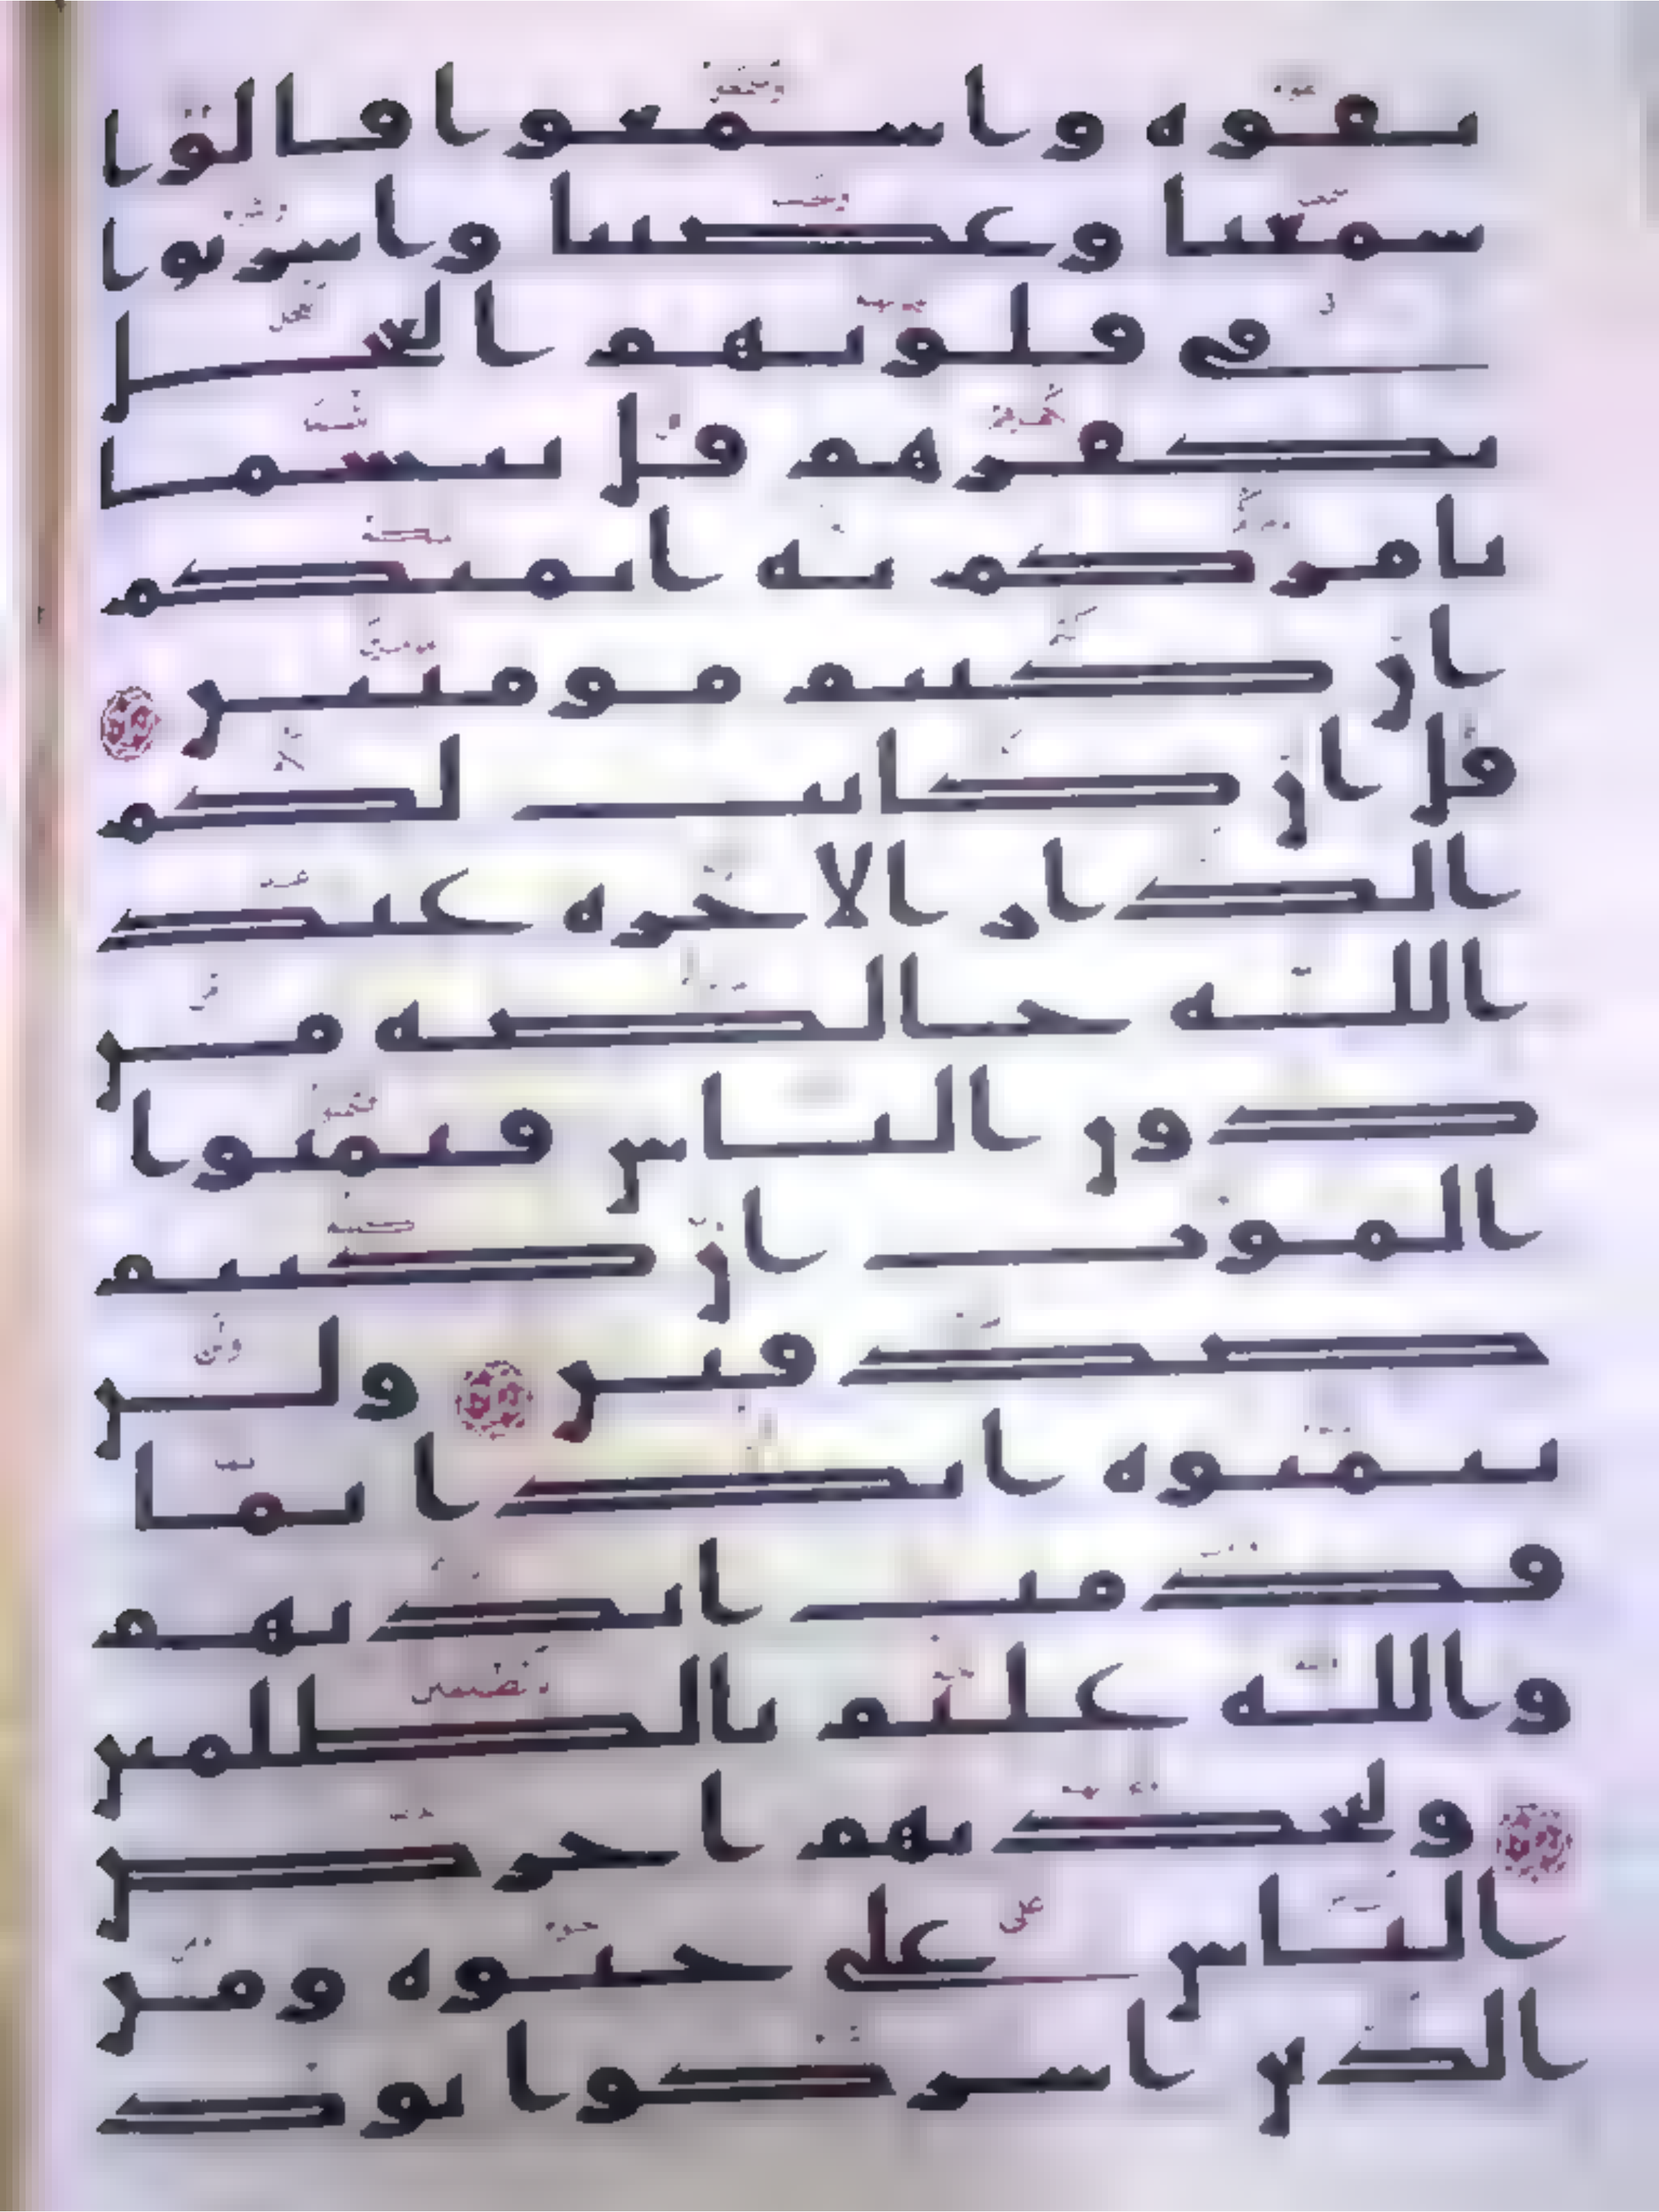 بقوة واسمعوا قالوا
سمعنا وعصينا واشربوا
في قلوبهم العجل
بكفرهم قل بئسما
يامركم به ايمنكم
ان كنتم مومنين
قل ان كانت لكم
الدار الاخرة عند
الله خالصة من
دون الناس فتمنوا
الموت ان كنتم
صدقين ولن
يتمنوه ابدا بما
قدمت ايديهم
والله عليم بالظلمين
ولتجدنهم احرص
الناس على حيوة ومن
الذين اشركوا يود